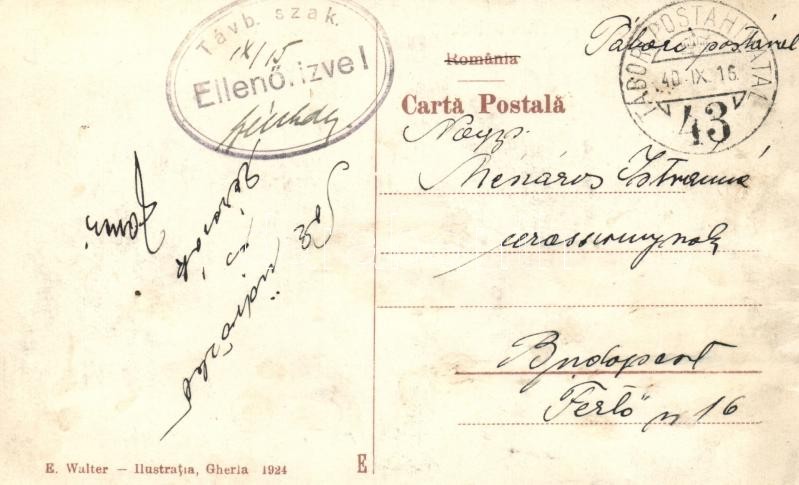 Távb. szak.
IX/15
Ellenő.izve I
România
Carta Postală
Tábori postával
TÁBORI POSTAHIVATAL
40.IX.16.
43
Nagys.
Mészáros Istvánné
urasszonynak
Budapest
Fertő u 16
és
üdvözlet
E. Walter — Ilustrația, Gherla 1924
E